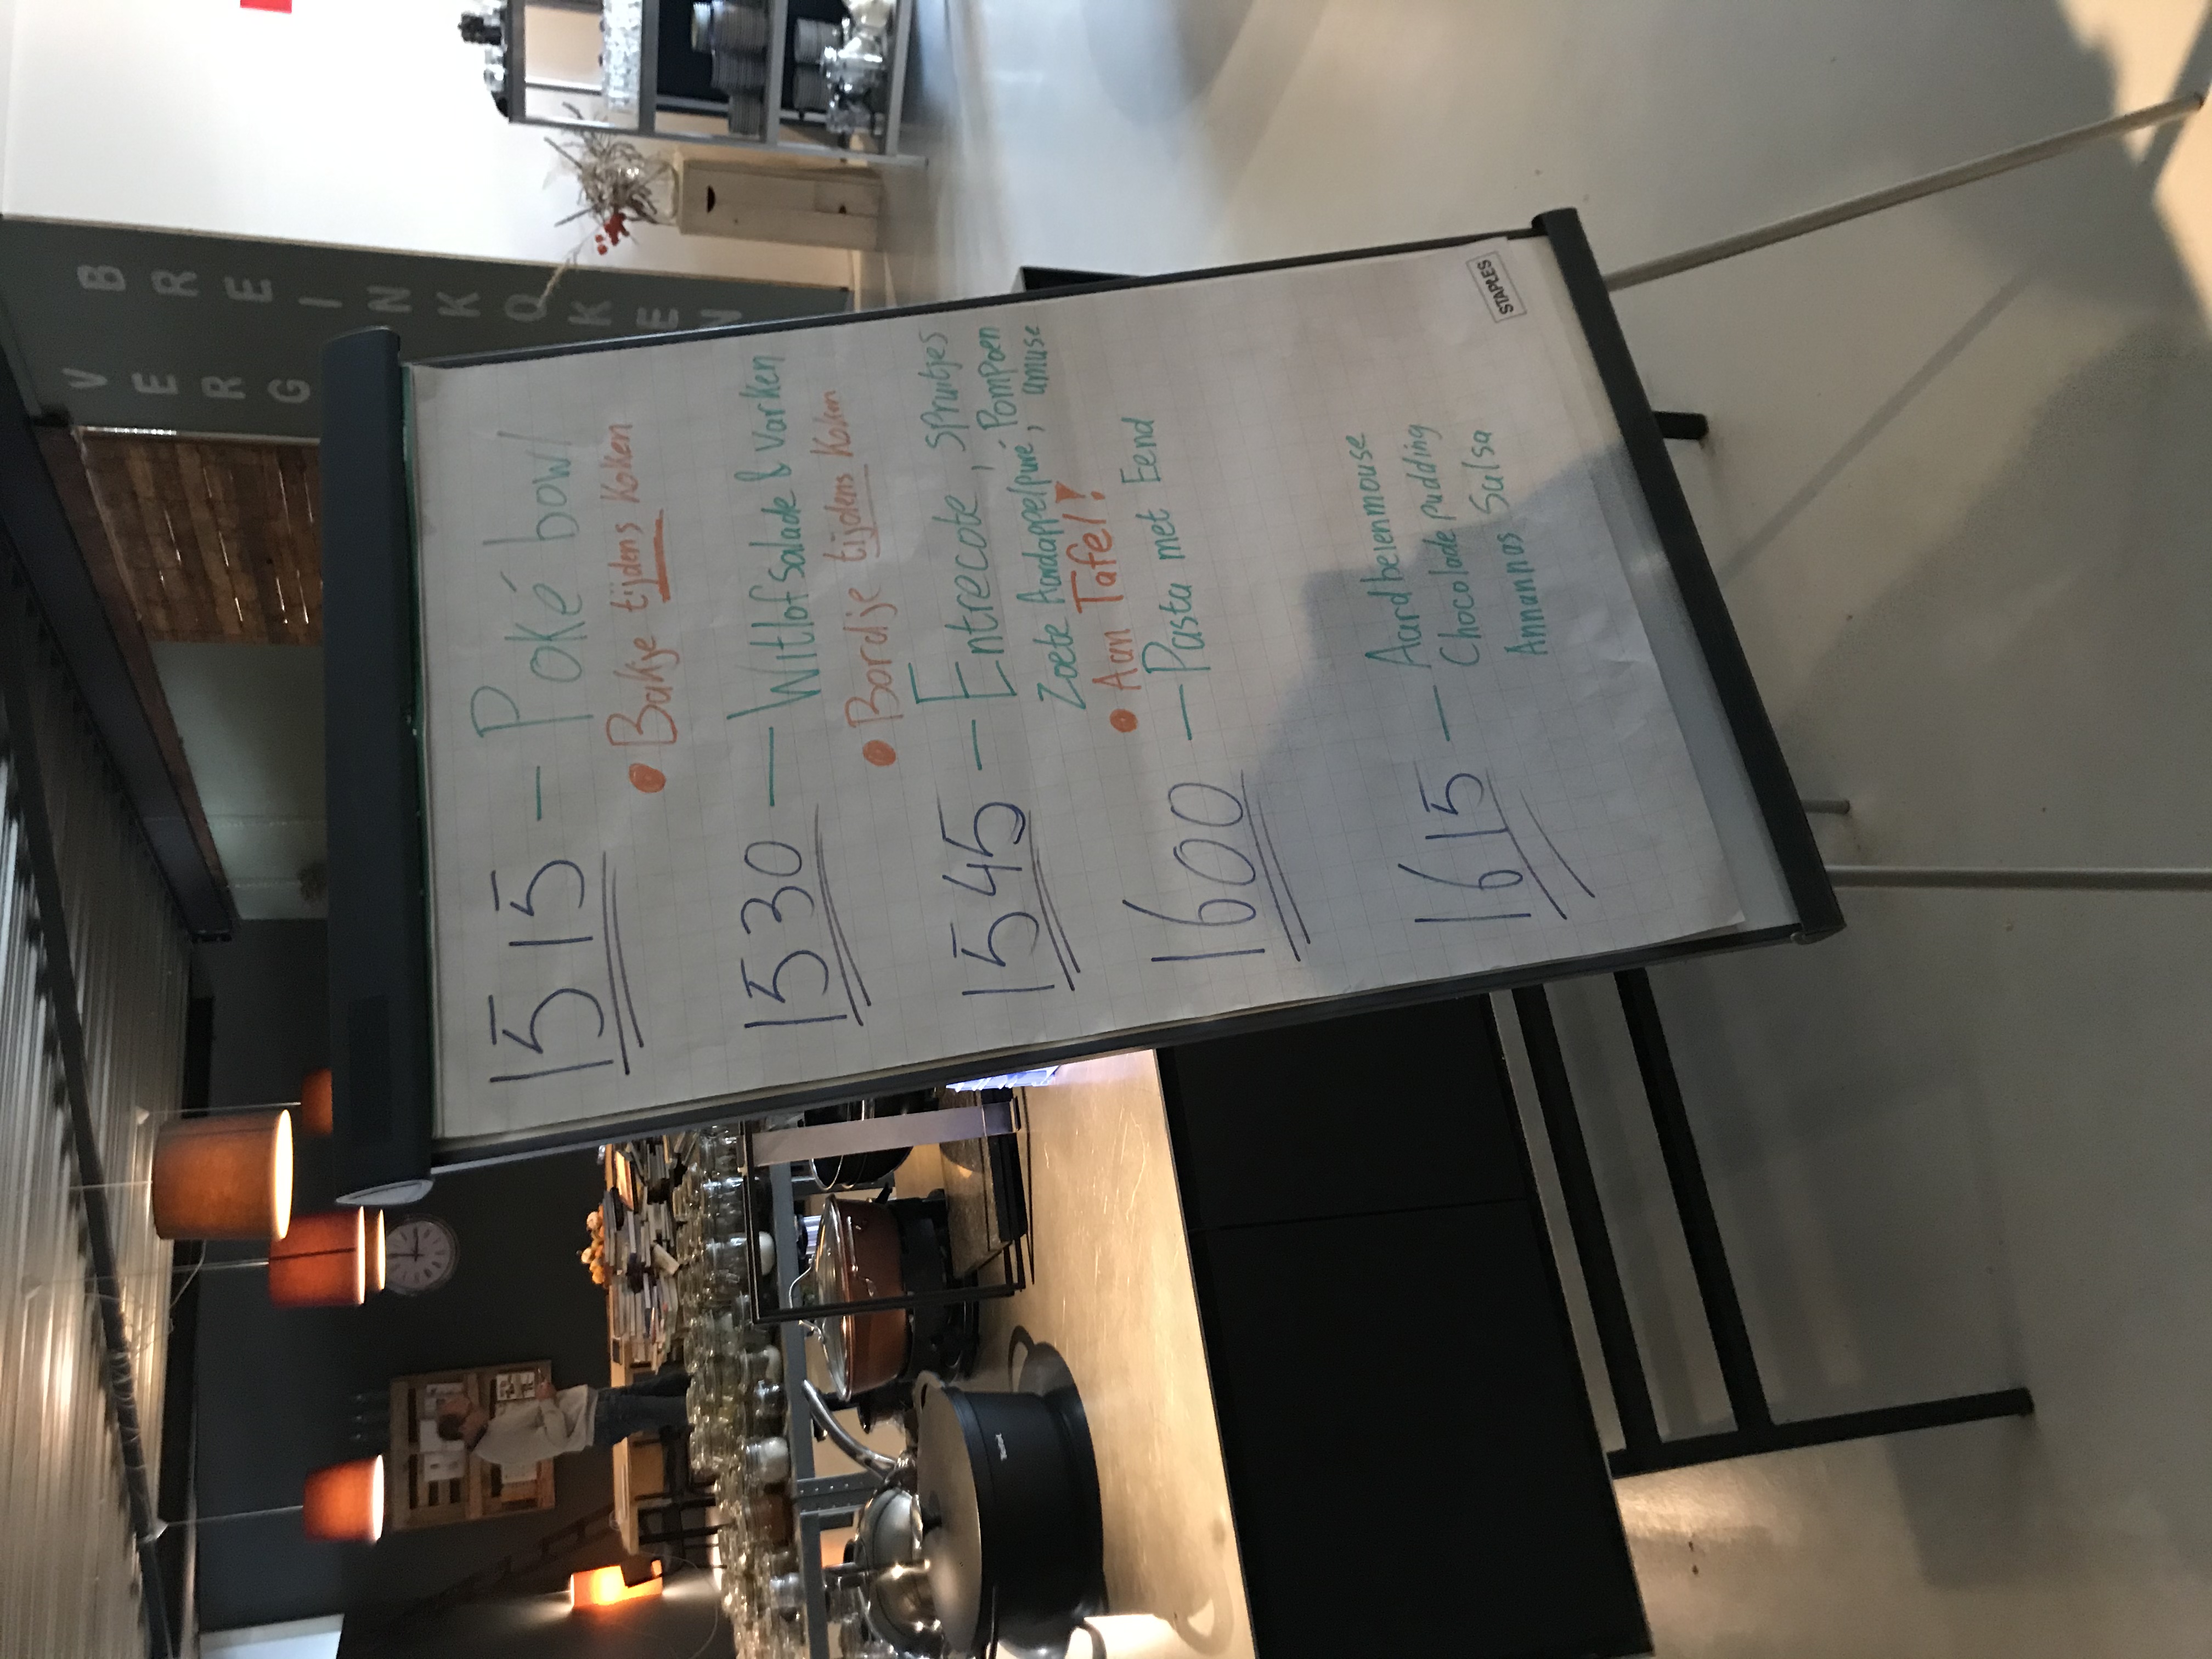 VERG
BREINKOKEN
1515 — Poké bowl
• Bakje tijdens koken
1530 — Witlofsalade & varken
• Bordje tijdens koken
1545 — Entrecote, spruitjes
Zoete Aardappelpuré, Pompoen
amuse
• Aan Tafel!
1600 — Pasta met Eend
1615 — Aardbeienmouse
Chocolade pudding
Annannas Salsa
STAPLES
Tefal